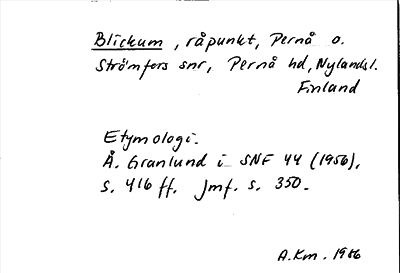 Blickum, råpunkt, Pernå o.
Strömfors snr, Pernå hd, Nylandsl.
Finland
Etymologi.
Å. Granlund i SNF 44 (1956),
s. 416 ff. Jmf. s. 350.
A.Km. 1986